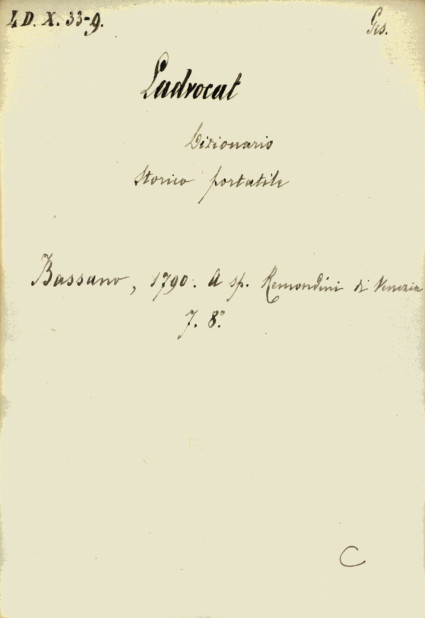 4 D. X. 33-9.
Ges.
Ladvocat
Dizionario
storico portatile
Bassano, 1790. A sp. Remondini di Venezia
7. 8°
C